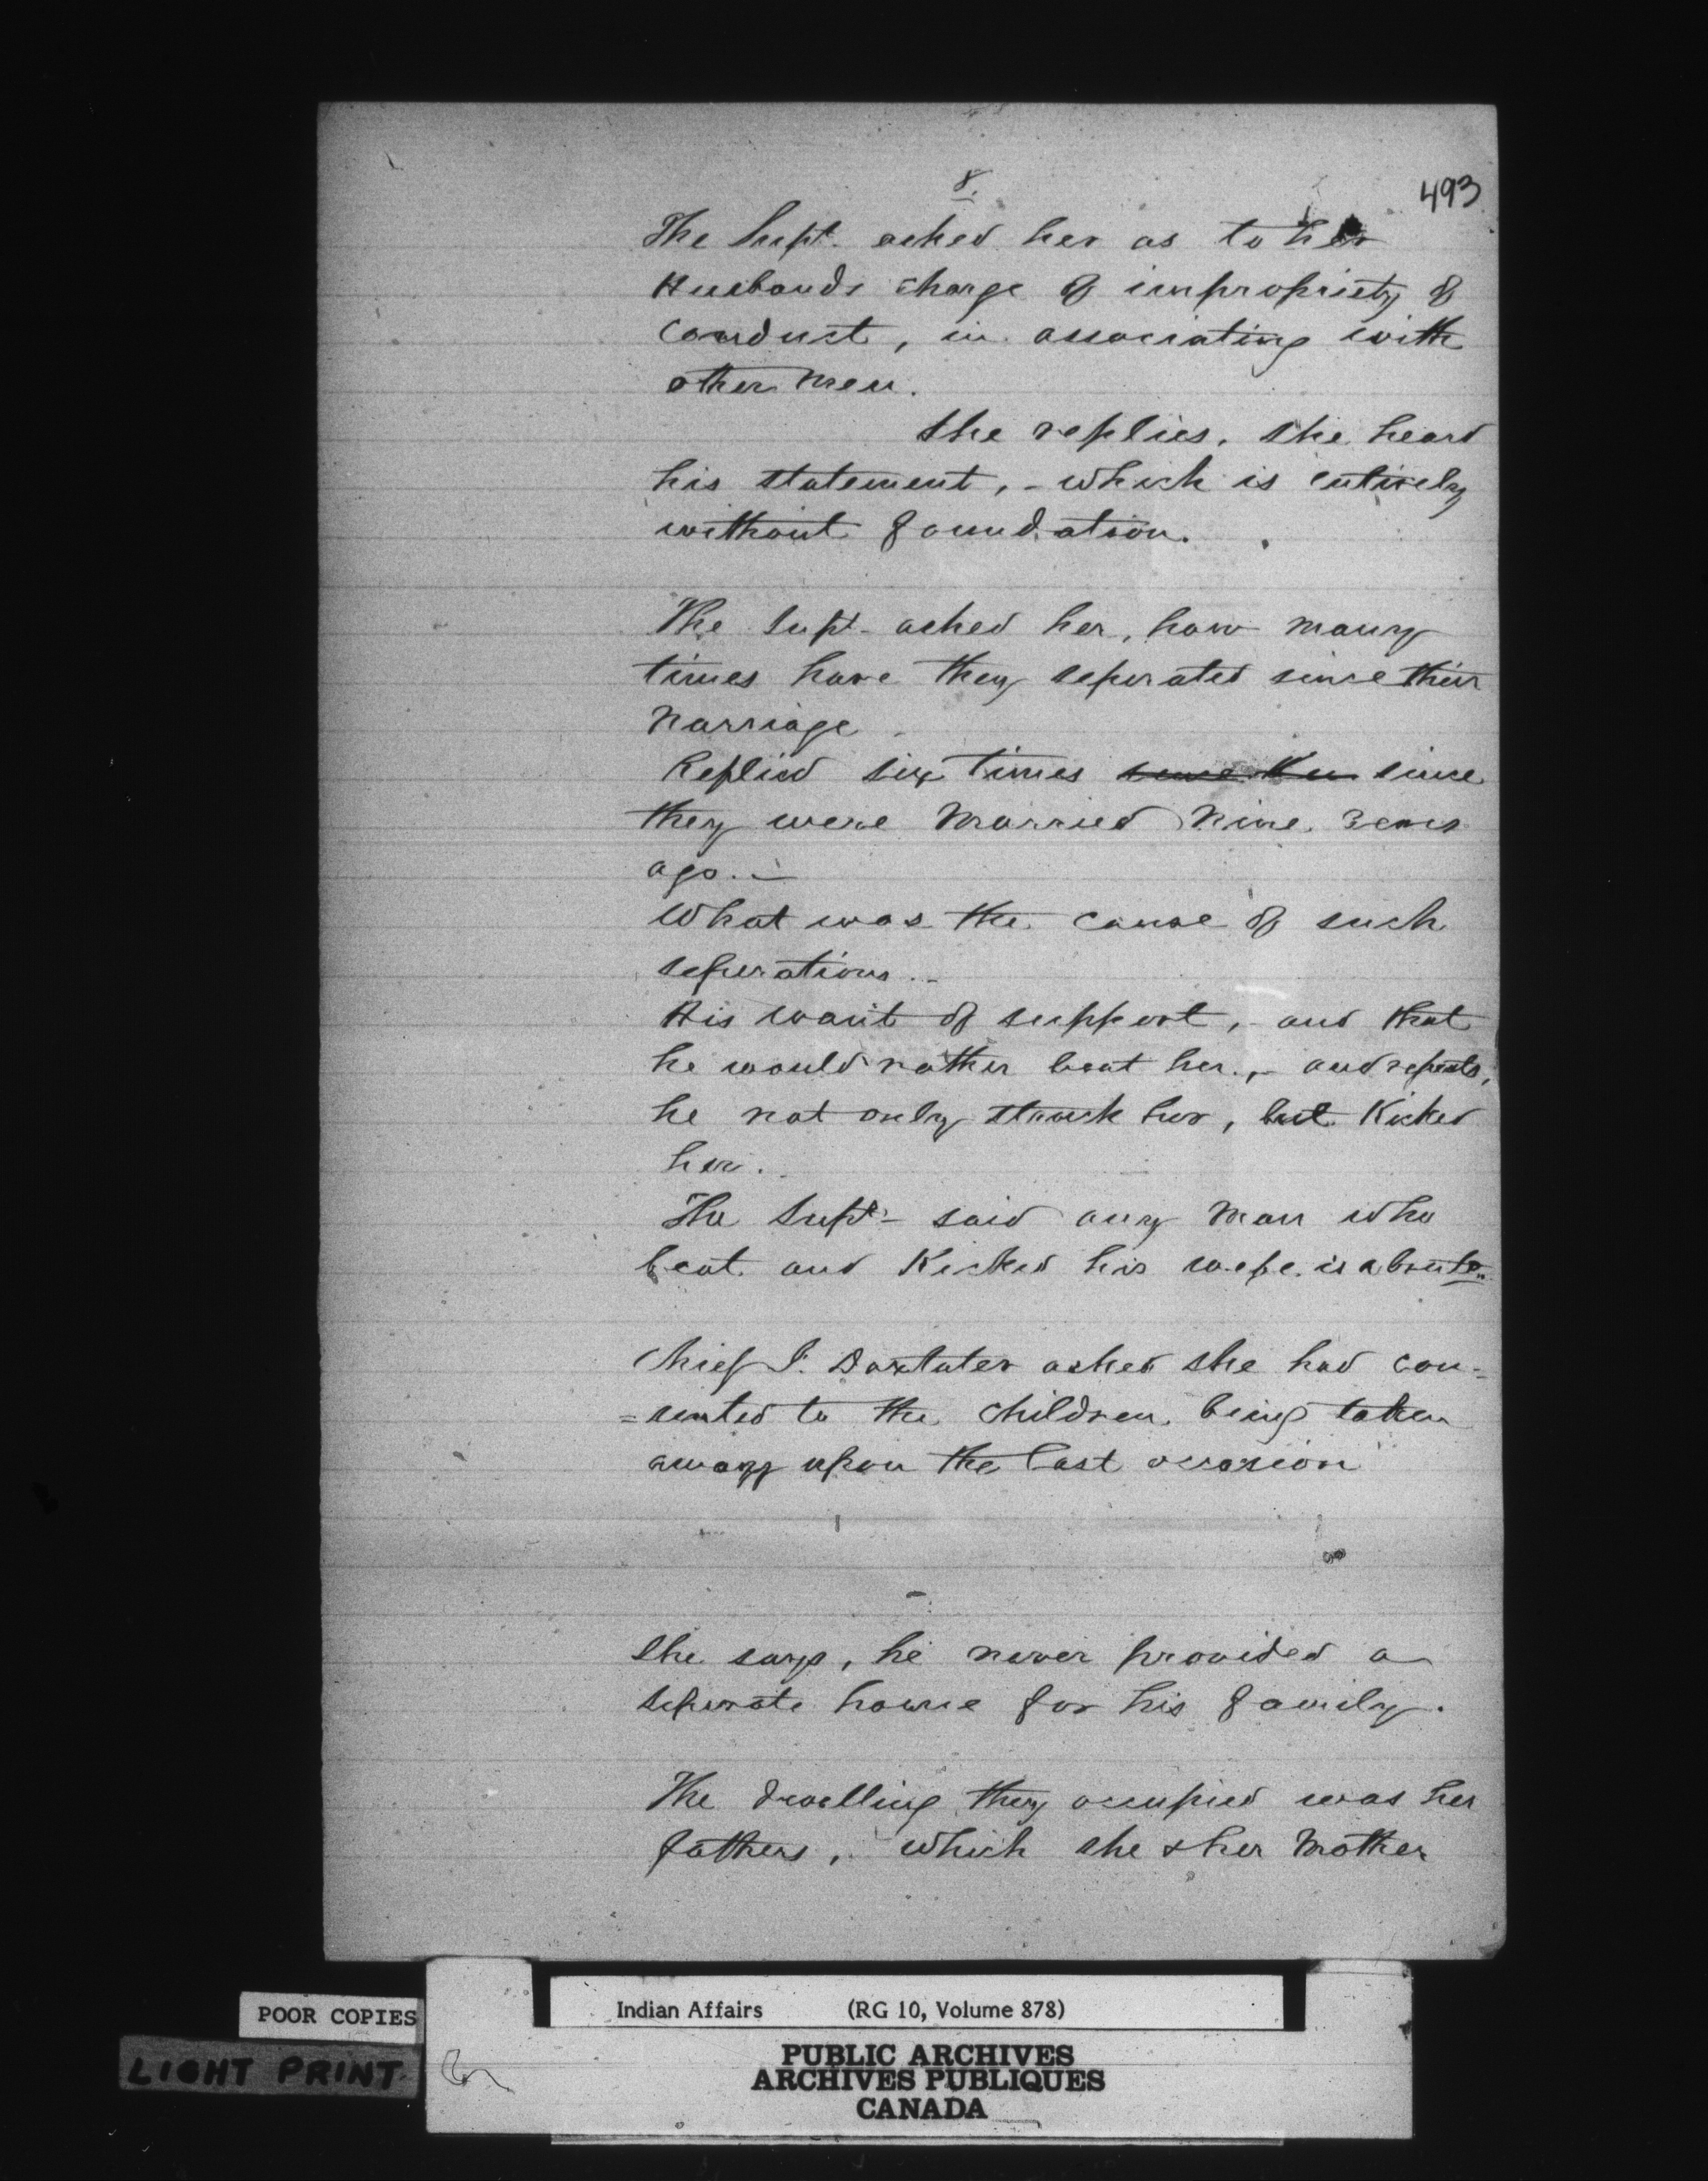 8.
493
The Supt. asked her as to her
Husbands charge of impropriety of
conduct, in associating with
other men.
She replies, she heard
his statement, - which is entirely
without foundation.
The Supt - asked her, how many
times have they seperated since their
marriage -
Replied six times since
they were married nine years
ago. -
What was the cause of such
seperations. -
His want of support, - and that
he would rather beat her., - and repeats,
he not only struck her, but Kicked
her.
The Supt - said any man who
beat and Kicked his wife is a brute.
Chief J. Doxtater asked she had con-
=sented to the children being taken
away upon the last occasion
She says, he never provided a
seperate home for his family.
The dwelling they occupied was her
fathers, which she & her Mother
POOR COPIES
LIGHT PRINT
Indian Affairs (RG 10, Volume 878)
PUBLIC ARCHIVES
ARCHIVES PUBLIQUES
CANADA